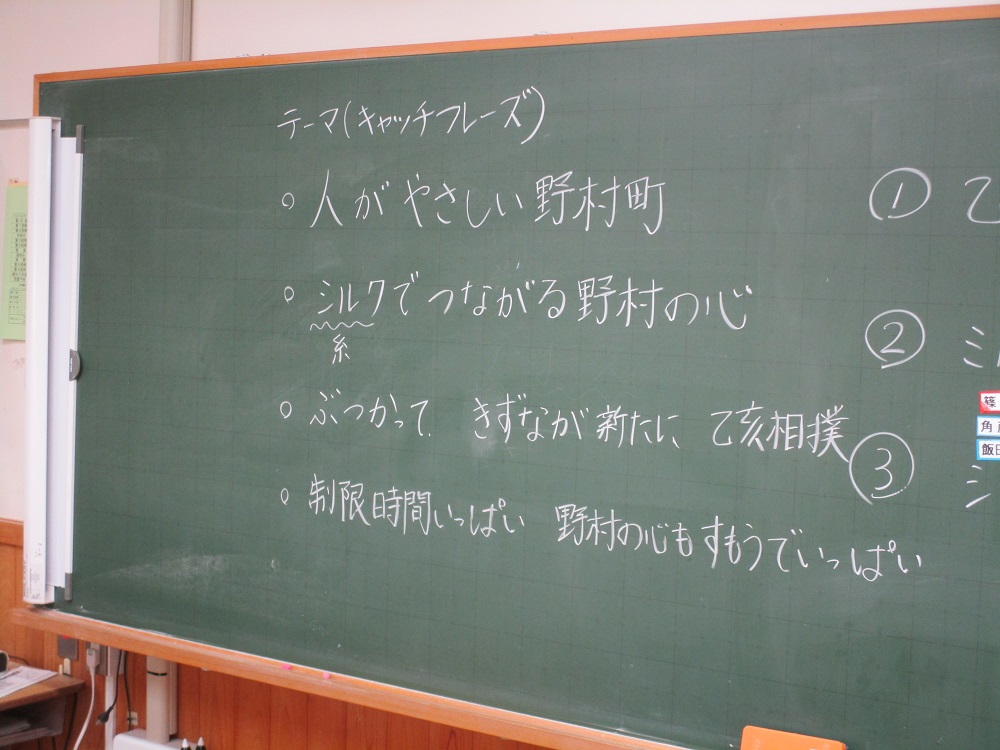 テーマ(キャッチフレーズ)
○ 人がやさしい野村町
○ シルクでつながる野村の心
糸
○ ぶつかって きずなが新たに 乙亥相撲
○ 制限時間いっぱい 野村の心もすもうでいっぱい
① 乙
② シル
③ シ
篠
角
飯